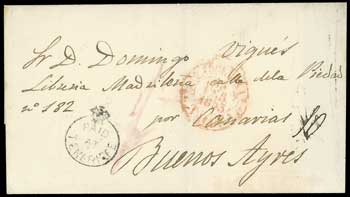 Sr D. Domingo Viqués
Libreria Madrileña calle de la Piedad
nº 182
por Canarias
Buenos Ayres
PAID
AT
TENERIFFE